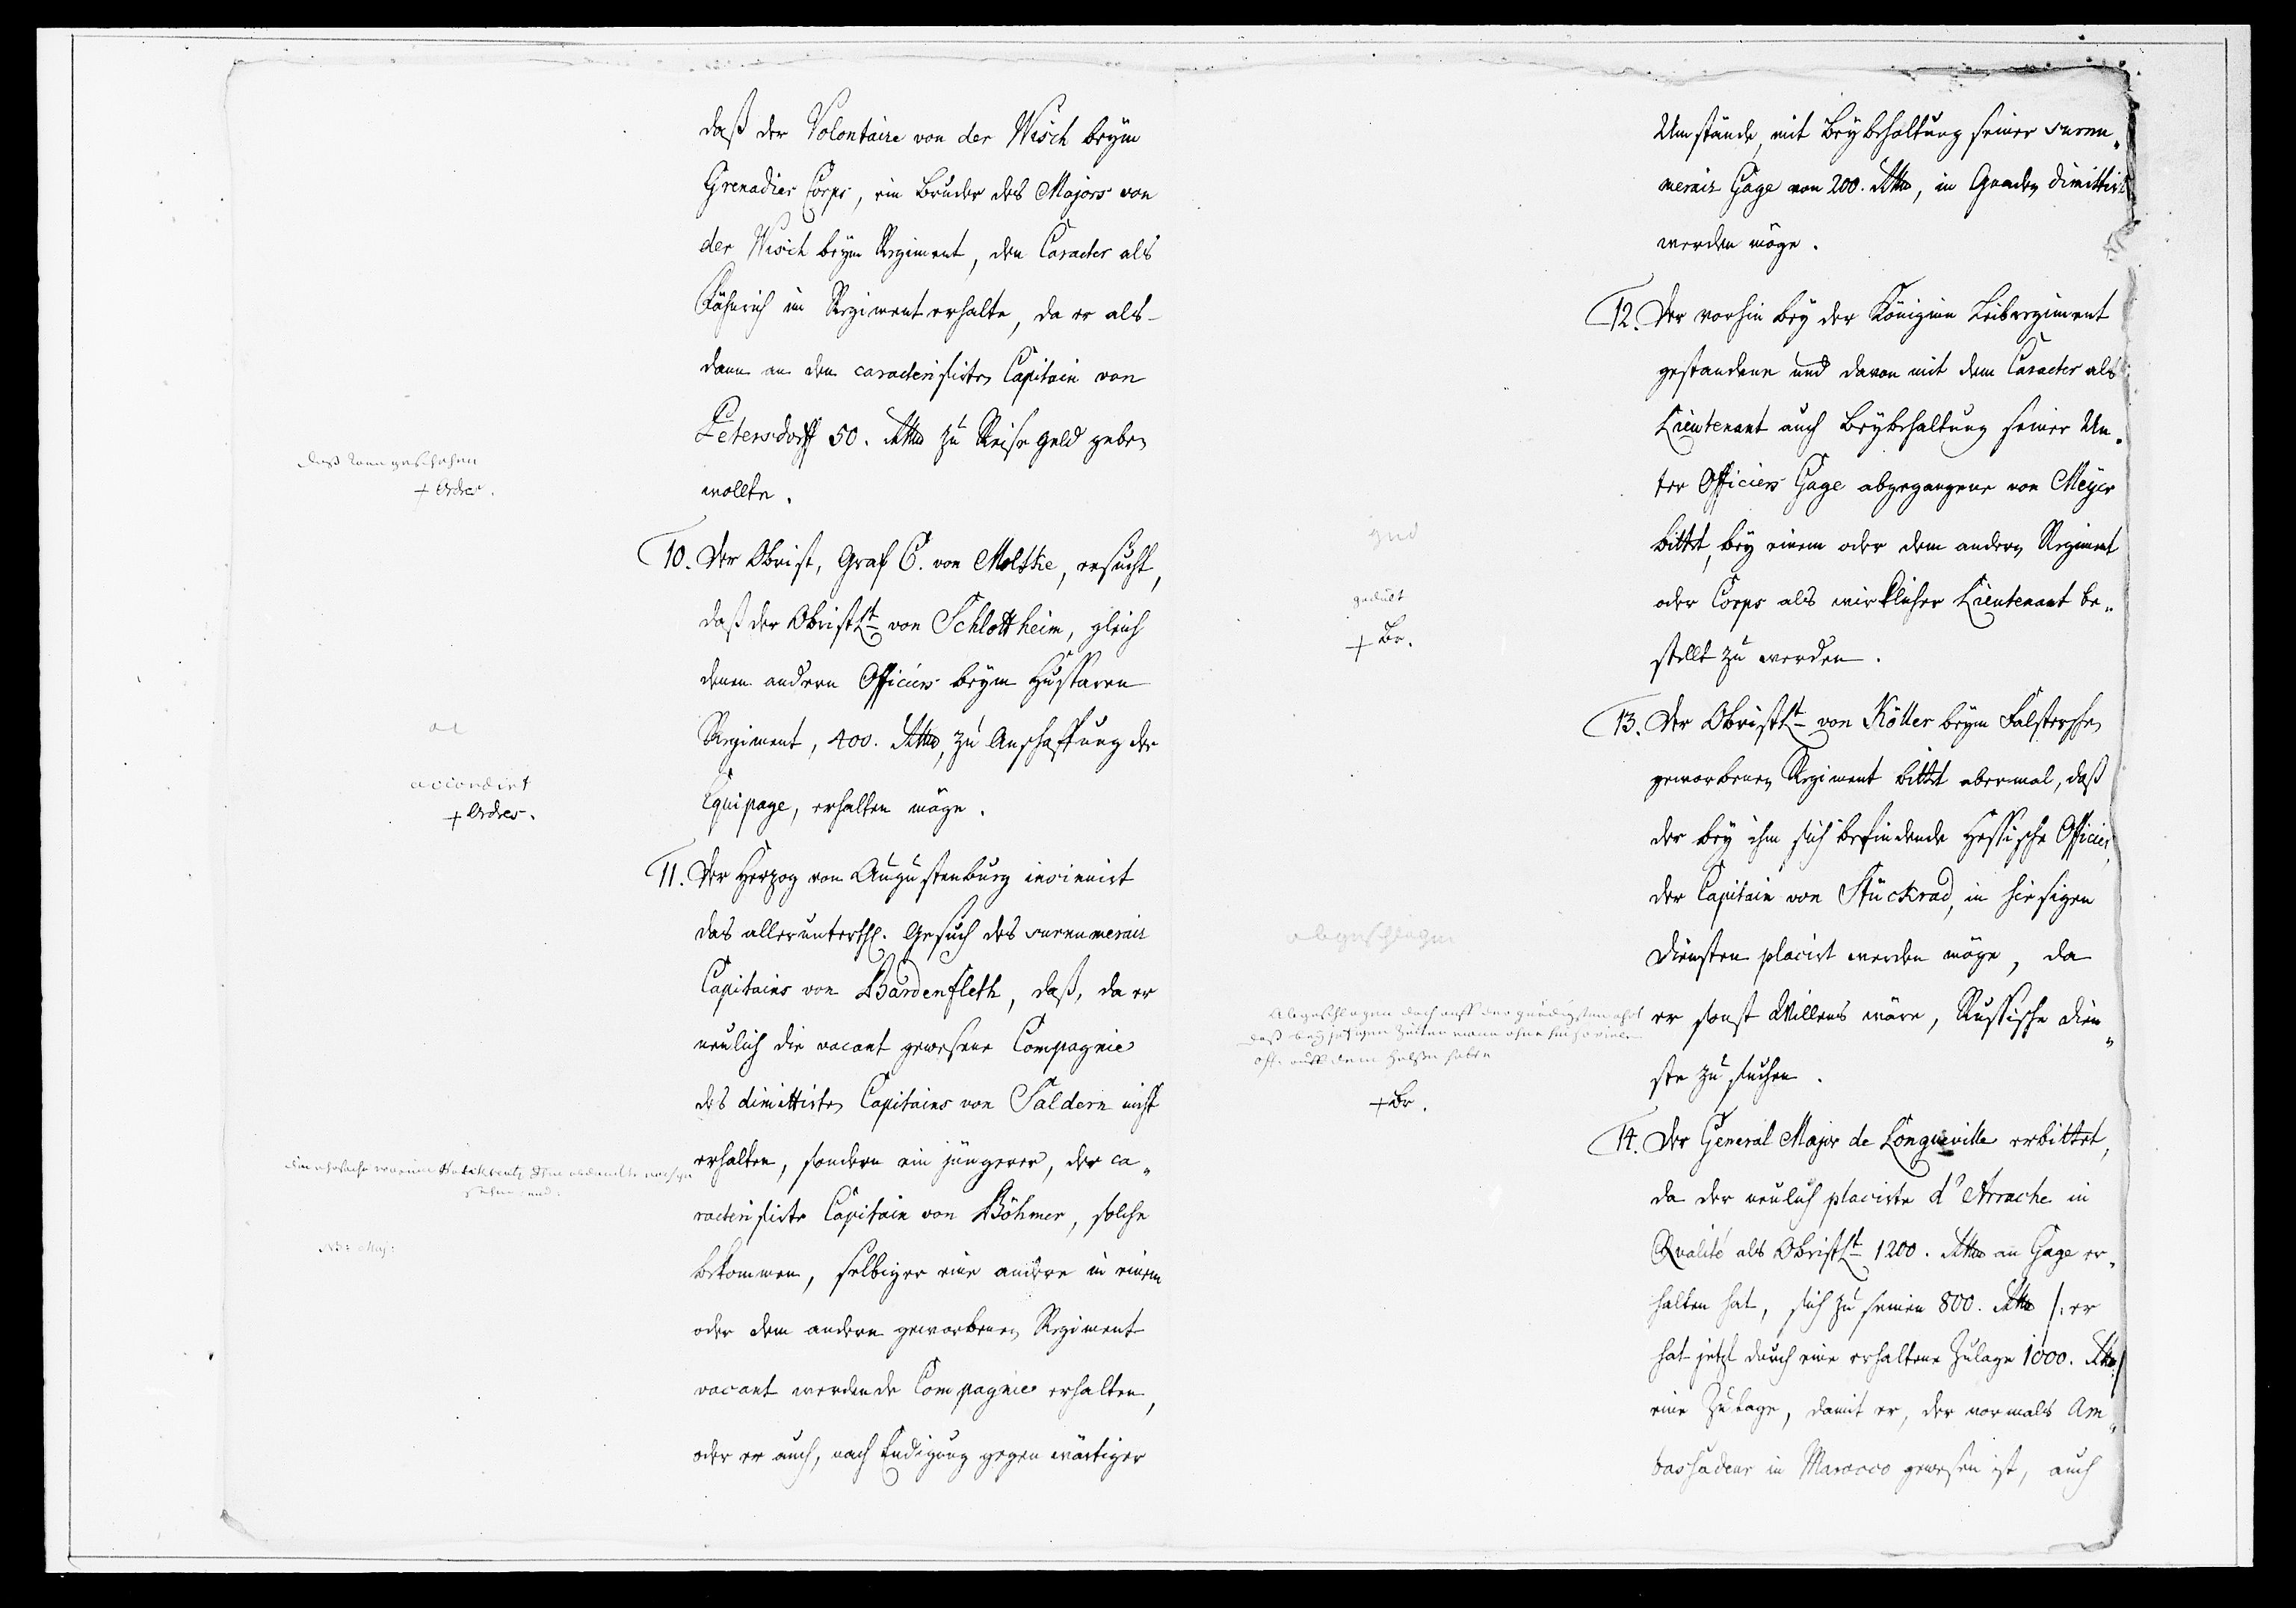 daß der Volontaire von der Wisch beym
Grenadier Corps, ein Bruder des Majors von
der Wisch beym Regiment, den Caracter als
Fähnrich im Regiment erhalte, da er als-
dann an den caracterisirten Capitain von
Petersdorff 50. Rthlr zu Reise geld geben
wollte.
daß kann geschehen
+ Ordre.
10. Der Obrist, Graf C. von Moltke, ersucht,
daß der ObristLt von Schlottheim, gleich
denen andern Officiers beym Hussaren
Regiment, 400. Rthlr, zu Anschaffung der
Equipage, erhalten möge.
ac
accordirt
+ Ordres.
11. Der Herzog von Augustenburg insinuirt
das allerunterth. Gesuch des surnumerair
Capitains von Bardenfleth, daß, da er
neulich die vacant gewesene Compagnie
des dimittirten Capitains von Saldern nicht
erhalten, sondern ein jüngerer, der ca„
racterisirte Capitain von Böhmer, solche
bekommen, selbiger eine andere in einem
oder dem andern geworbenen Regiment
vacant werdende Compagnie erhalten,
oder er auch, nach Endigung gegenwärtiger
Umstände, mit Beybehaltung seiner surnu„
merair Gage von 200. Rthlr, in Gnaden dimittirt
werden möge.
12. Der vorhin bey der Königin Leibregiment
gestandene und davon mit dem Caracter als
Lieutenant auch Beybehaltung seiner Un„
ter Officiers Gage abgegangene von Meyer
bittet, bey einem oder dem andern Regiment
oder Corps als wirklicher Lieutenant be„
stellt zu werden.
gedult
+ Br.
13. Der ObristLt von Köller beym Falsterschen
geworbenen Regiment bittet abermal, daß
der bey ihm sich befindende Hessische Officier,
der Capitain von Stückrad, in hiesigen
Diensten placirt werden möge, da
er sonst Willens wäre, Russische Dien„
ste zu suchen.
abgeschlagen
Abgeschlagen doch auff der gnädigsten ahrt
daß bey jetzigen Zeiten mann ohne hin so viele
Off. auff dem Halse haben
+ Br.
14. Der General Major de Longueville erbittet,
da der neulich placirte d'Arrache in
Qualité als ObristLt 1200. Rthlr an Gage er„
halten hat, sich zu seinen 800. Rthlr /: er
hat jetzt durch eine erhaltene Zulage 1000. Rthlr :/
eine Zulage, damit er, der vormals Am„
bassadeur in Marocco gewesen ist, auch